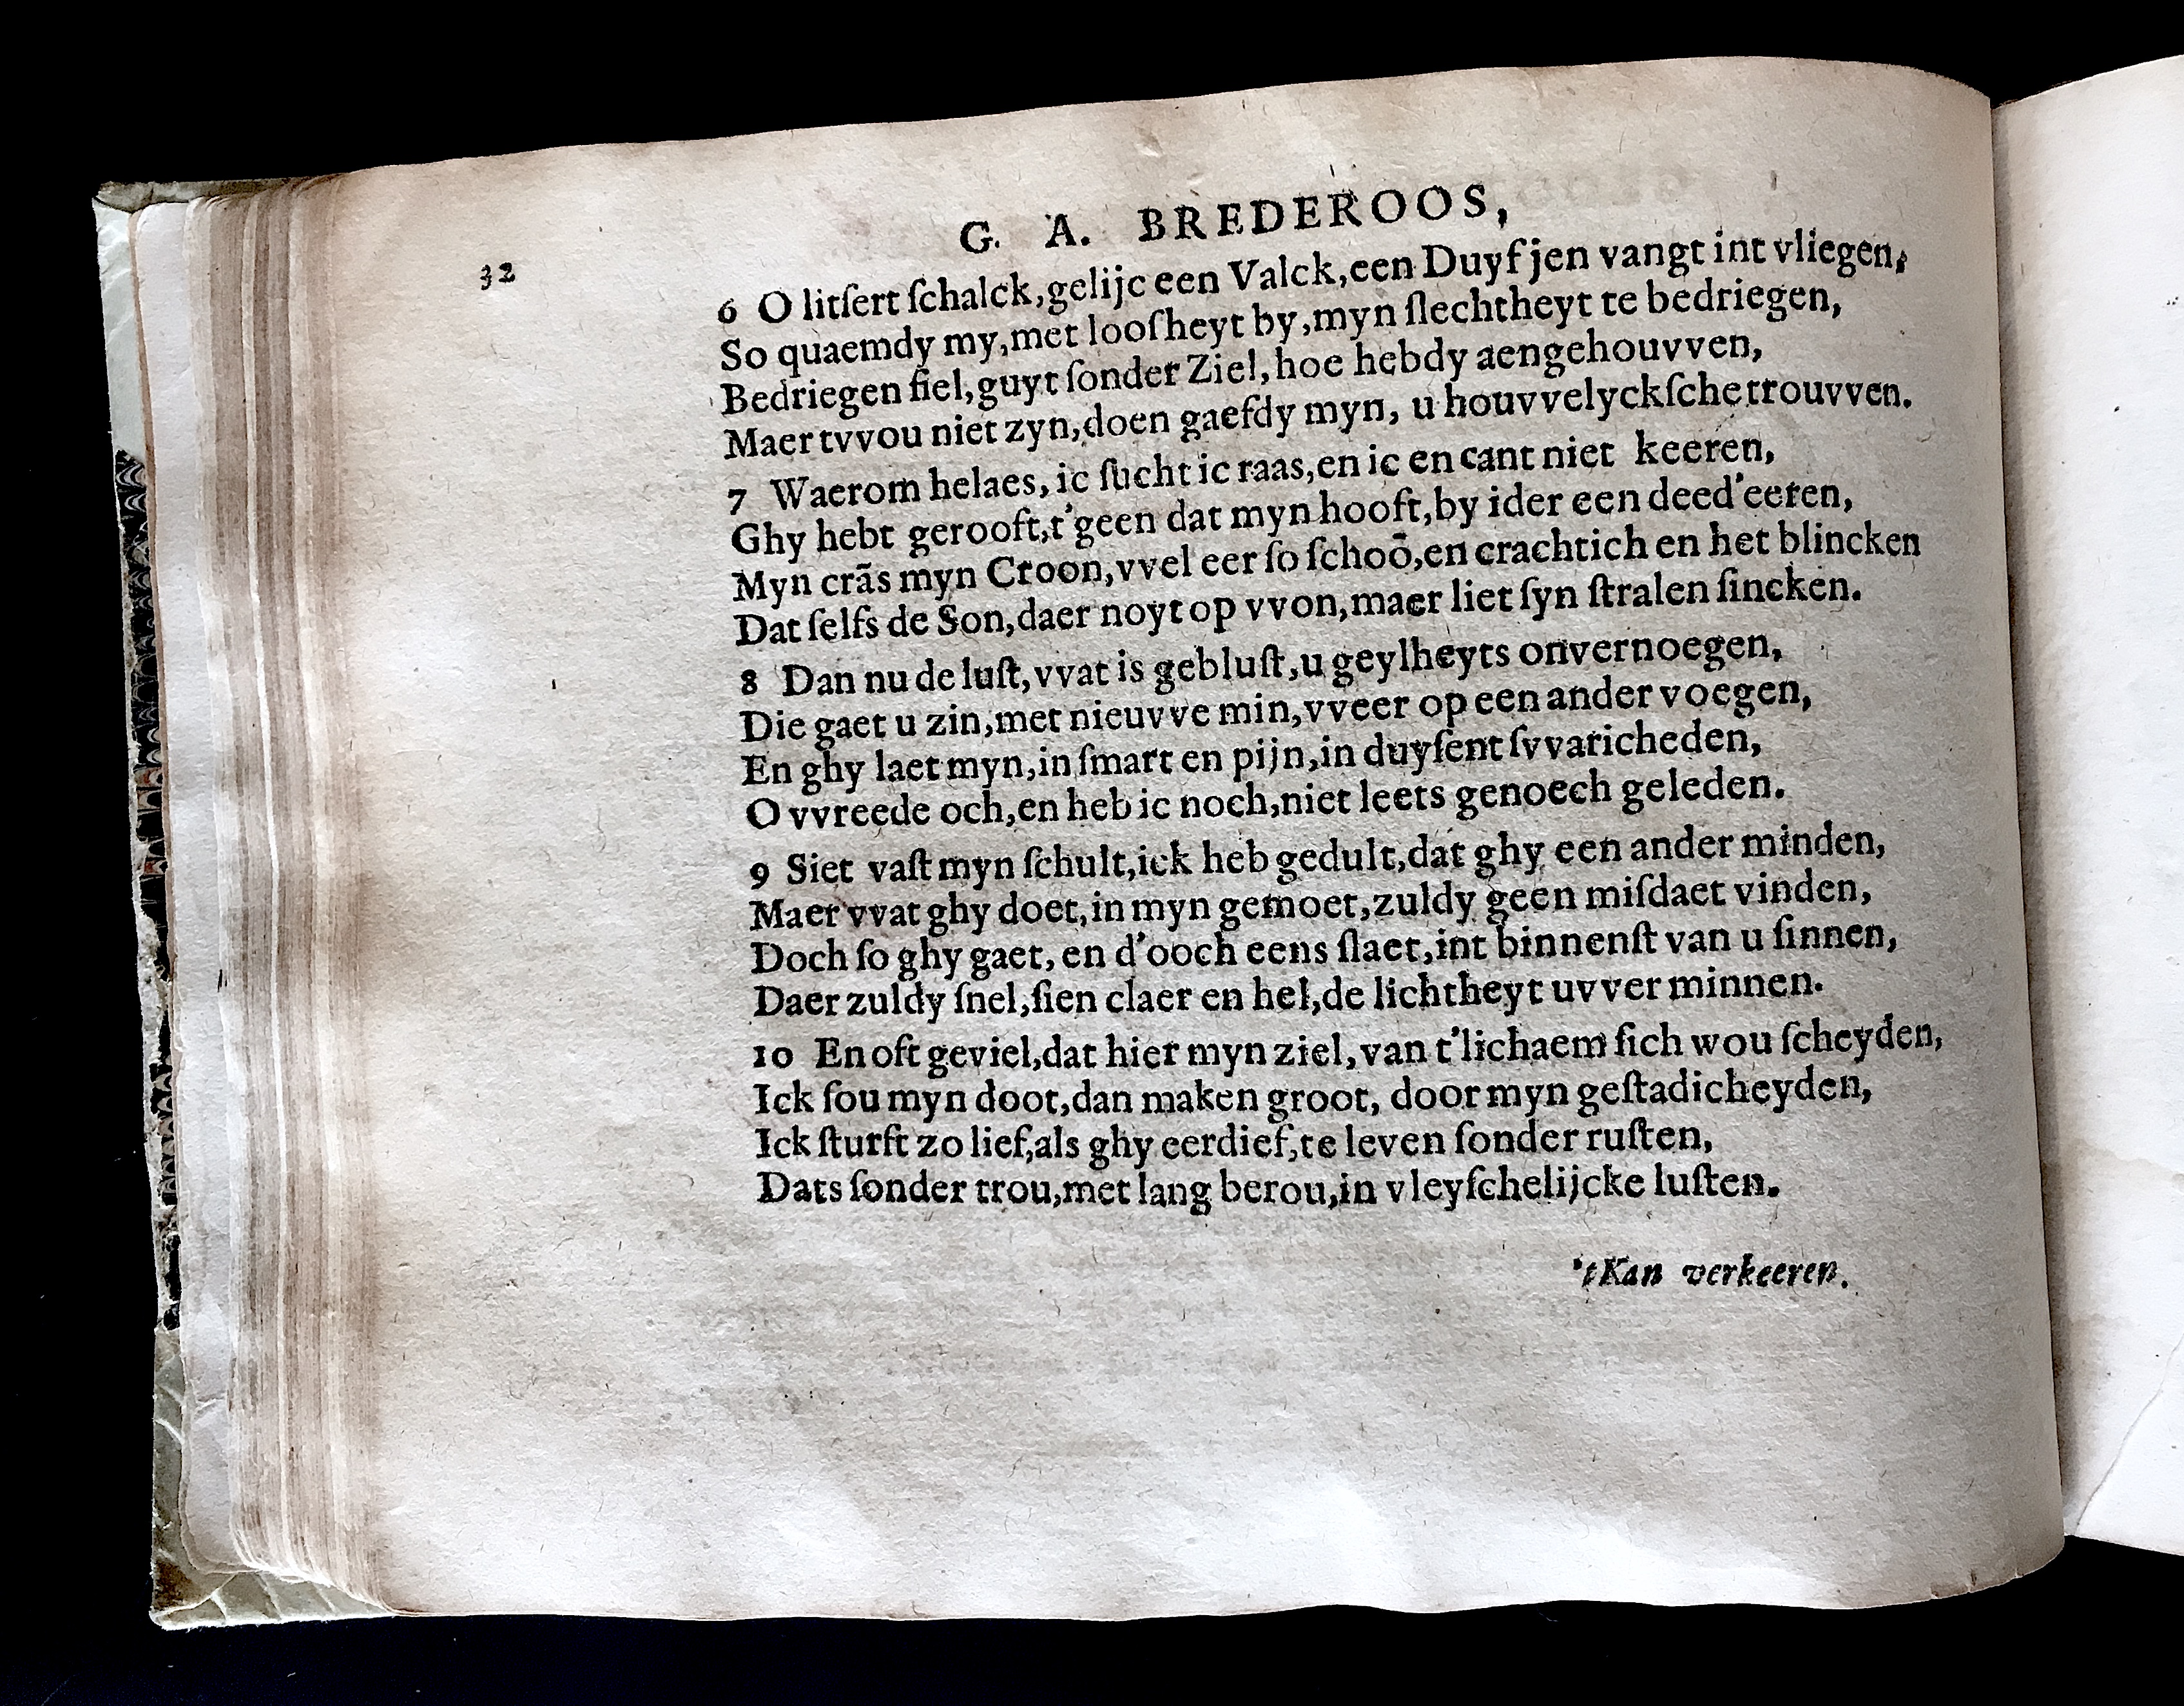 G. A. BREDEROOS,
32
6 O litſert ſchalck,gelijc een Valck,een Duyfjen vangt int vliegen,
So quaemdy my,met looſheyt by,myn ſlechtheyt te bedriegen,
Bedriegen fiel,guyt ſonder Ziel,hoe hebdy aengehouvven,
Maer tvvou niet zyn,doen gaefdy myn, u houvvelyckſche trouvven.
7 Waerom helaes, ic ſucht ic raas,en ic en cant niet keeren,
Ghy hebt gerooft,t'geen dat myn hooft,by ider een deed'eeren,
Myn crãs myn Croon,vvel eer ſo ſchoō,en crachtich en het blincken
Dat ſelfs de Son,daer noyt op vvon,maer liet ſyn ſtralen ſincken.
8 Dan nu de luſt,vvat is gebluſt,u geylheyts onvernoegen,
Die gaet u zin,met nieuvve min,vveer op een ander voegen,
En ghy laet myn,in ſmart en pijn,in duyſent ſvvaricheden,
O vvreede och,en heb ic noch,niet leets genoech geleden.
9 Siet vaſt myn ſchult,ick heb gedult,dat ghy een ander minden,
Maer vvat ghy doet,in myn gemoet,zuldy geen miſdaet vinden,
Doch ſo ghy gaet, en d'ooch eens ſlaet,int binnenſt van u ſinnen,
Daer zuldy ſnel,ſien claer en hel,de lichtheyt uvver minnen.
10 En oft geviel,dat hier myn ziel,van t'lichaem ſich wou ſcheyden,
Ick ſou myn doot,dan maken groot, door myn geſtadicheyden,
Ick ſturft zo lief,als ghy eerdief,te leven ſonder ruſten,
Dats ſonder trou,met lang berou,in vleyſchelijcke luſten.
'tKan verkeeren.